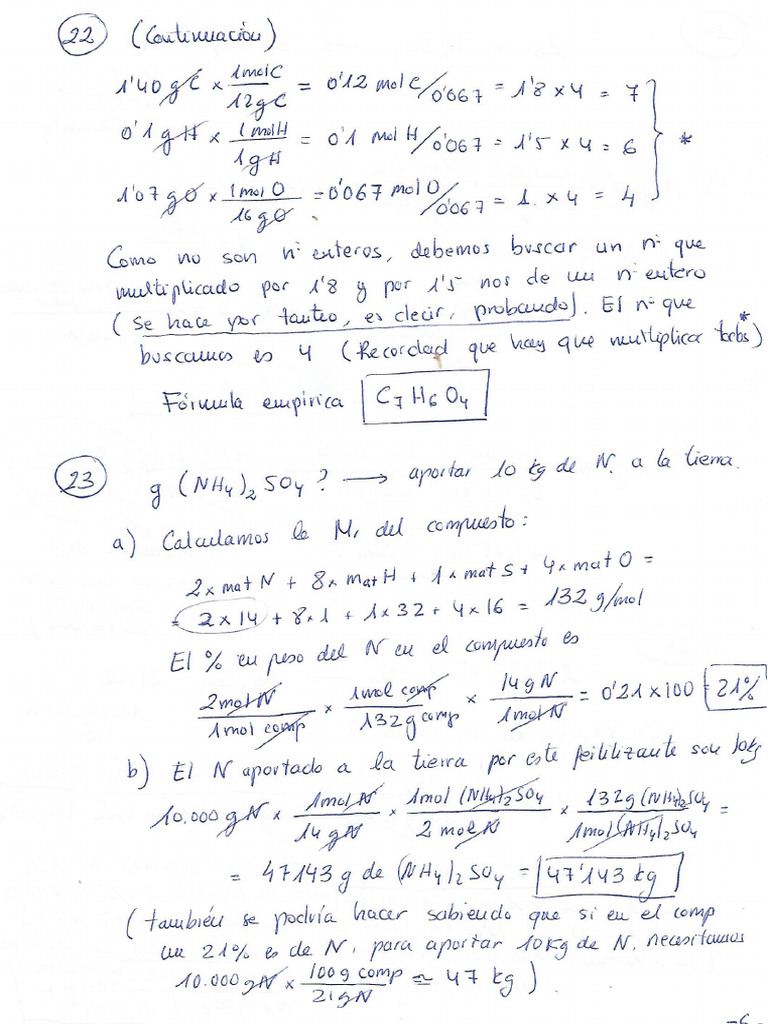 22 (Continuación)
1'40 g C × 1 mol C / 12 g C = 0'12 mol C / 0'067 = 1'8 × 4 = 7
0'1 g H × 1 mol H / 1 g H = 0'1 mol H / 0'067 = 1'5 × 4 = 6 } *
1'07 g O × 1 mol O / 16 g O = 0'067 mol O / 0'067 = 1. × 4 = 4
Como no son nº enteros, debemos buscar un nº que
multiplicado por 1'8 y por 1'5 nos de un nº entero
(se hace por tanteo, es decir, probando). El nº que
buscamos es 4 (Recordad que hay que multiplicar todos*)
Fórmula empírica C7H6O4
23 g (NH4)2SO4? → aportar 10 kg de N. a la tierra.
a) Calculamos la Mr del compuesto:
2 × mat N + 8 × mat H + 1 × mat S + 4 × mat O =
= 2 × 14 + 8 × 1 + 1 × 32 + 4 × 16 = 132 g/mol
El % en peso del N en el compuesto es
2 mol N / 1 mol comp × 1 mol comp / 132 g comp × 14 g N / 1 mol N = 0'21 × 100 = 21%
b) El N aportado a la tierra por este feitilizante son 10 kg
10.000 g N × 1 mol N / 14 g N × 1 mol (NH4)2SO4 / 2 mol N × 132 g (NH4)2SO4 / 1 mol (NH4)2SO4 =
= 47143 g de (NH4)2SO4 = 47'143 kg
(también se podría hacer sabiendo que si en el comp
un 21% es de N, para aportar 10 Kg de N, necesitamos
10.000 g N × 100 g comp / 21 g N ≃ 47 kg)
-6-